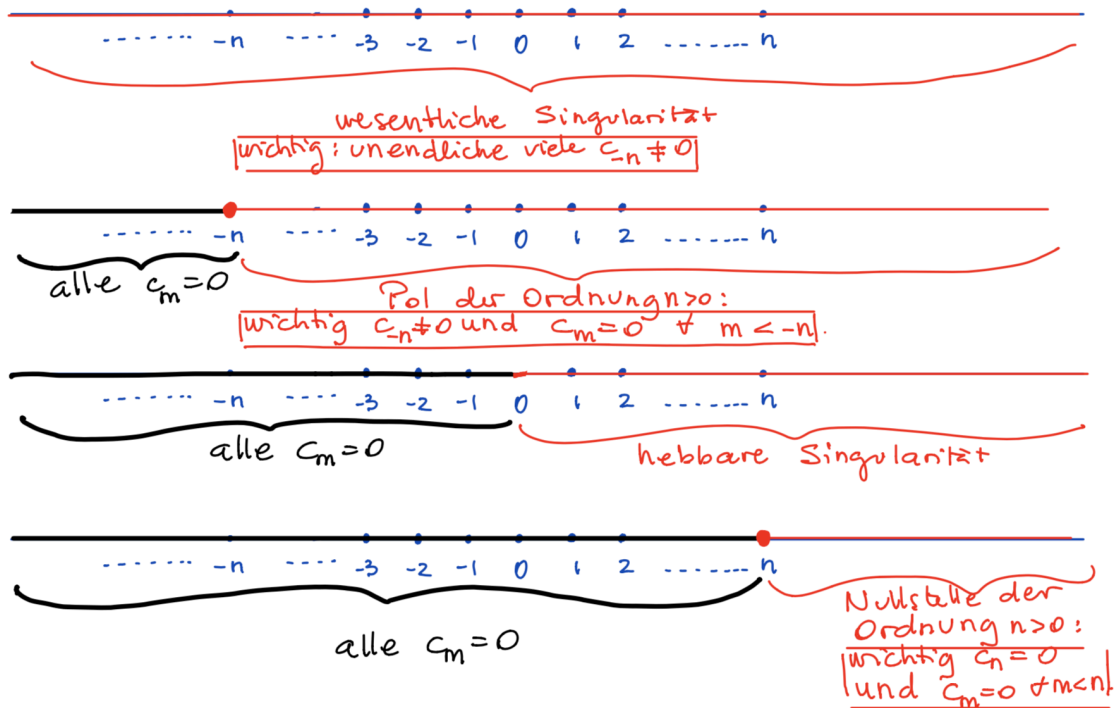 ........ -n .... -3 -2 -1 0 1 2 ........ n
wesentliche Singularität
wichtig: unendliche viele c_-n ≠ 0
........ -n .... -3 -2 -1 0 1 2 ........ n
alle c_m = 0
Pol der Ordnung n>0:
wichtig c_-n ≠ 0 und c_m = 0 ∀ m < -n.
........ -n .... -3 -2 -1 0 1 2 ........ n
alle c_m = 0
hebbare Singularität
........ -n .... -3 -2 -1 0 1 2 ........ n
alle c_m = 0
Nullstelle der
Ordnung n>0:
wichtig c_n = 0
und c_m = 0 ∀ m < n